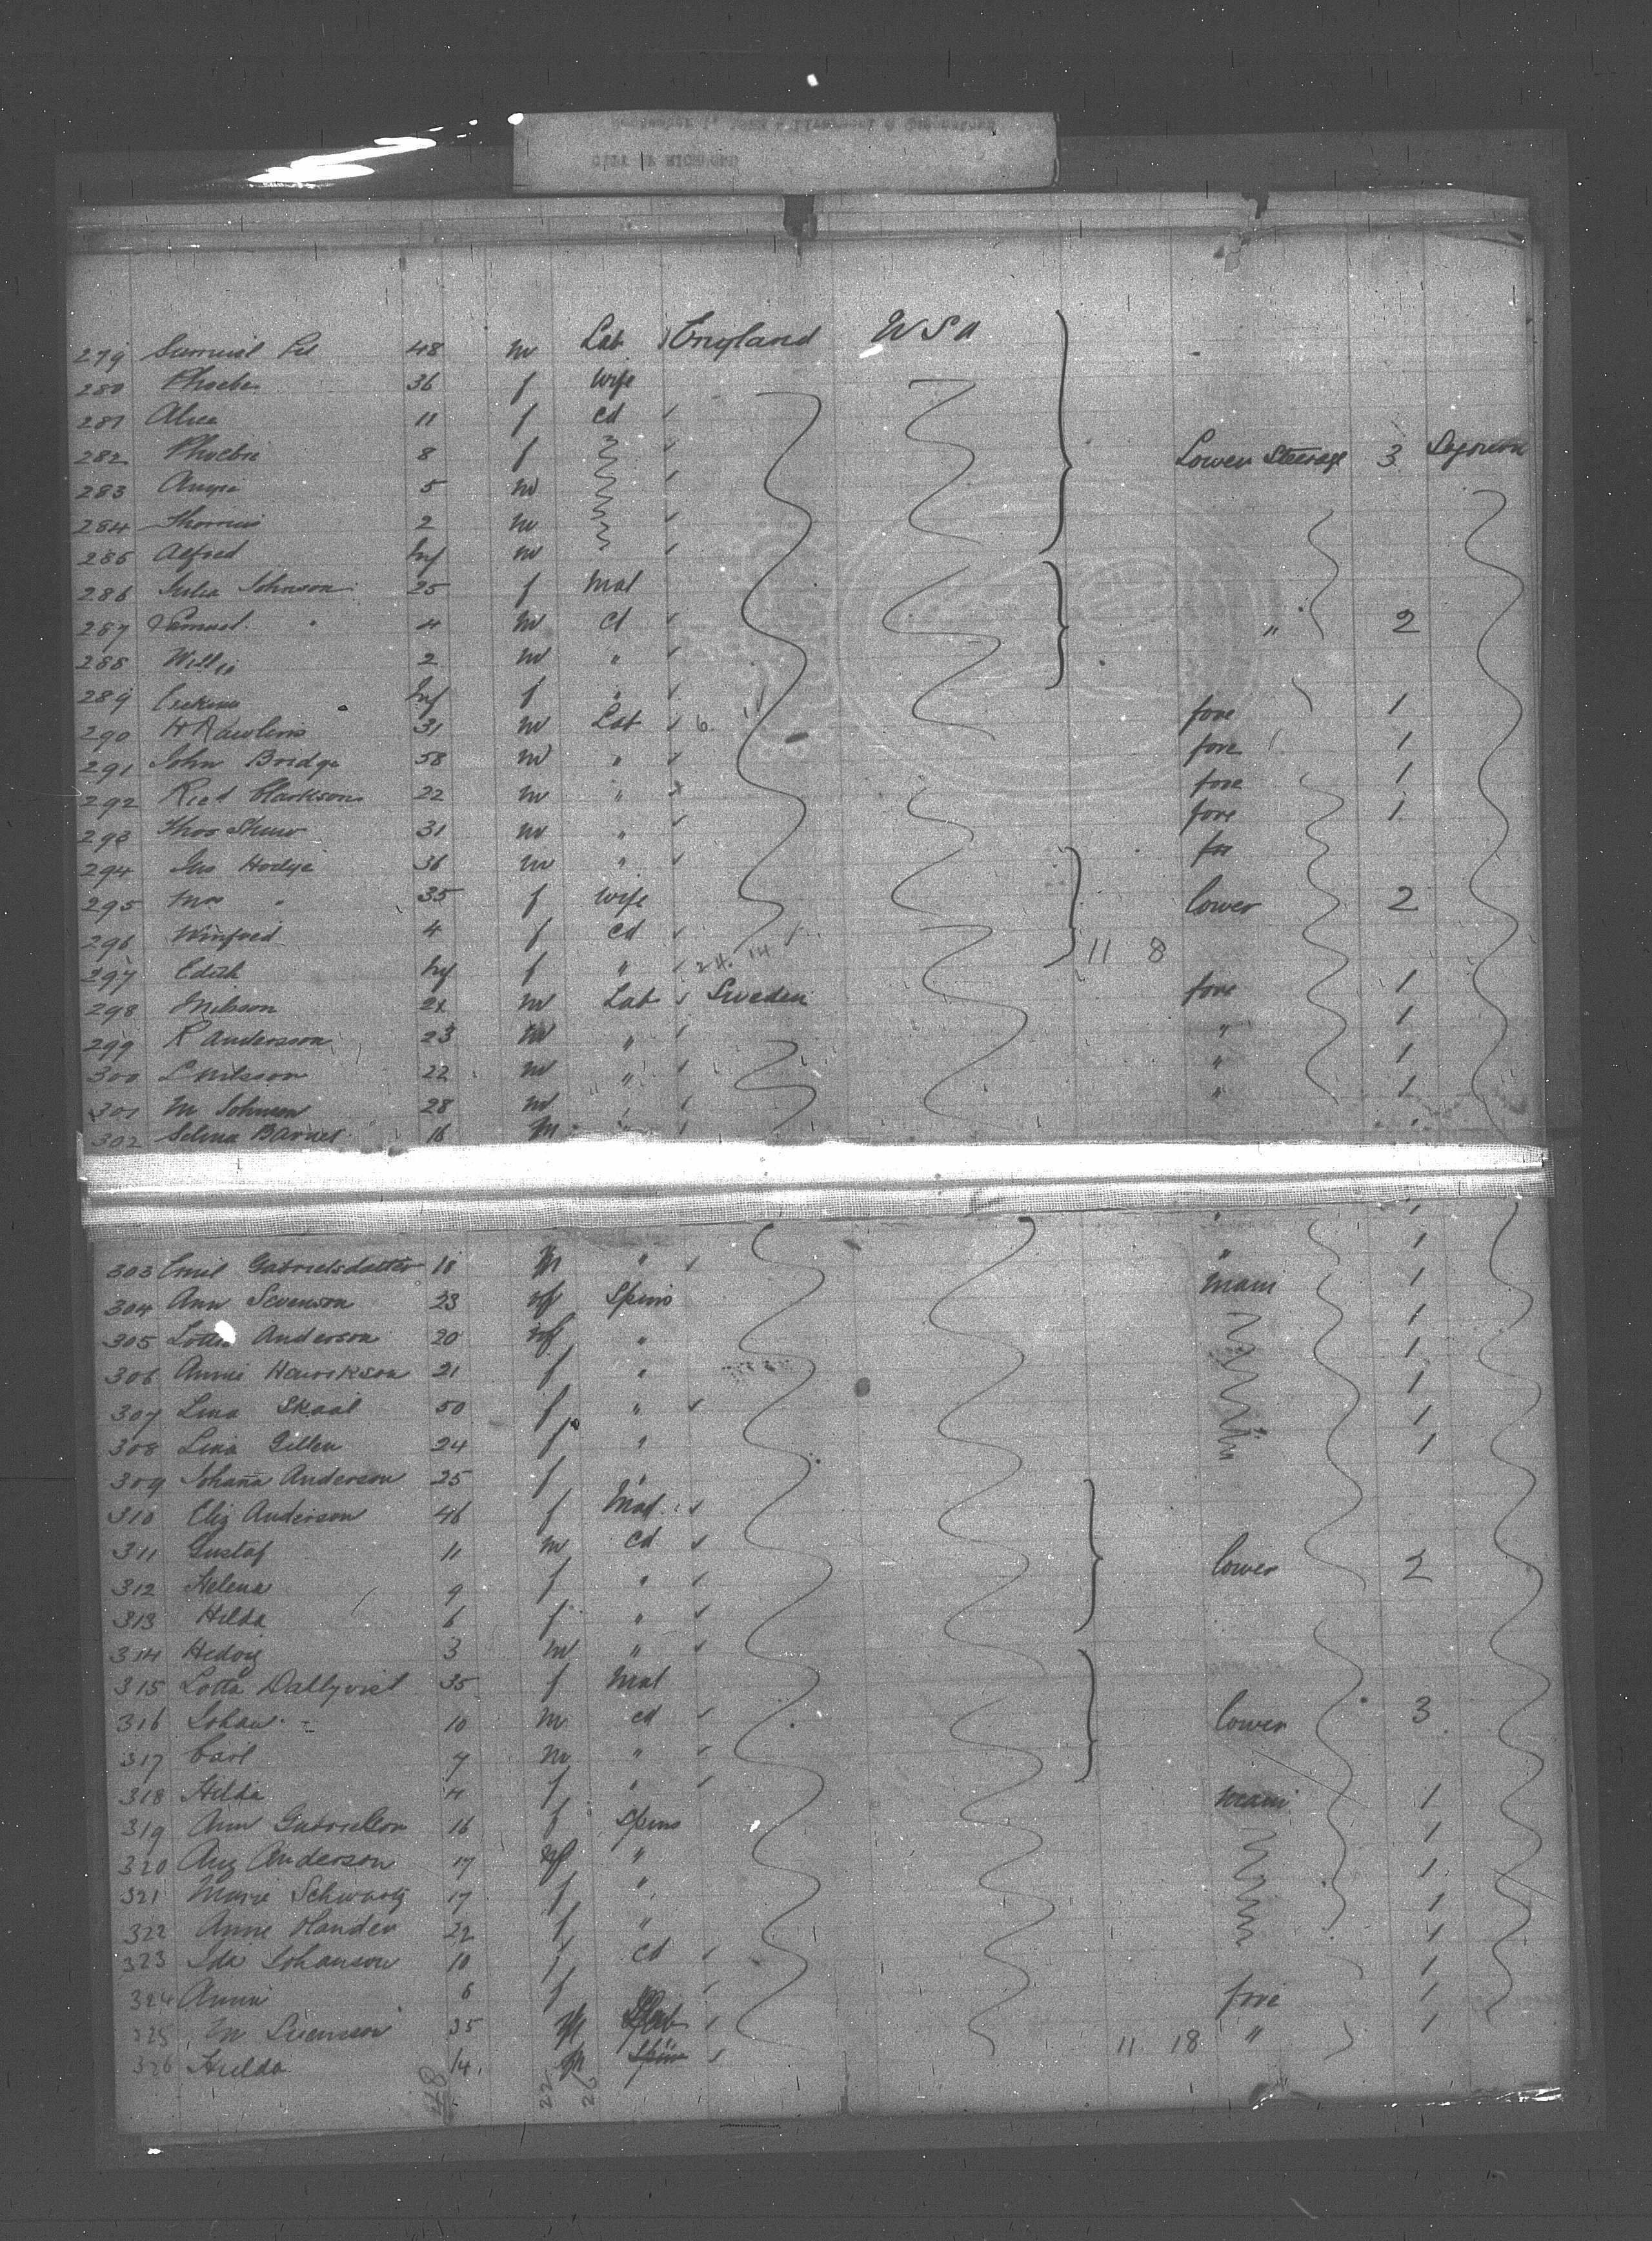 CITY OF RICHMOND
279 Samuel 48 m Lab England USA
280 Phoebe 36 f Wife
281 Alice 11 f Cd
282 Phoebie 8 f Lower Steerage 3
283 5 m
284 Thomas 2 m
285 Alfred Inf m
286 Julia Johnson 25 f Mat
287 Samuel " 4 m Cd " 2
288 Willie 2 m "
289 Inf f "
290 H Rawlins 31 m Lab 6 11 fore 1
291 John Bridge 58 m " fore 1
292 Richd Clarkson 22 m " fore 1
293 Thos Shaw 31 m " fore 1
294 Jno Hodge 36 m " for
295 Mrs " 35 f Wife lower 2
296 Winifred 4 f Cd 11 8
297 Edith Inf f " 24. 14
298 Nilsson 21 m Lab Sweden fore 1
299 R Andersson 23 m " " 1
300 L Nilsson 22 m " " 1
301 M Johnson 28 m " " 1
302 Selma Barnes 16 m "
303 Emil Gabrielsdatter 18 m " " 1
304 Ann Svenson 23 f Spins main 1
305 Lotta Anderson 20 f " 1
306 Annie Henrikson 21 f " 1
307 Lina Skaal 50 f " 1
308 Lina Gillen 24 f " 1
309 Johana Anderson 25 f " 1
310 Eliz Anderson 46 f Mat
311 Gustaf 11 m Cd lower 2
312 Helena 9 f "
313 Hilda 6 f "
314 Hedvig 3 m "
315 Lotta Dallqvist 35 f Mat
316 Johan 10 m cd lower 3
317 Carl 7 m "
318 Hilda 4 f " main 1
319 Ann Gabrielson 16 f Spins 1
320 Aug Anderson 17 f " 1
321 Marie Schwartz 17 f " 1
322 Anne Hander 22 f " 1
323 Ida Johanson 10 f Cd 1
324 Anni 6 f fore 1
325 M Svenson 35 m Lab 11 18 " 1
326 Hulda 14 m Spin
48 22 26